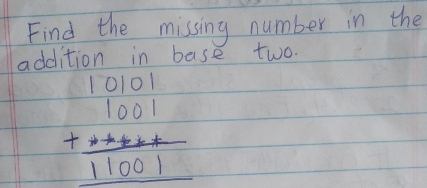 Find the missing number in the
addition in base two.
10101
1001
+ *****
11001